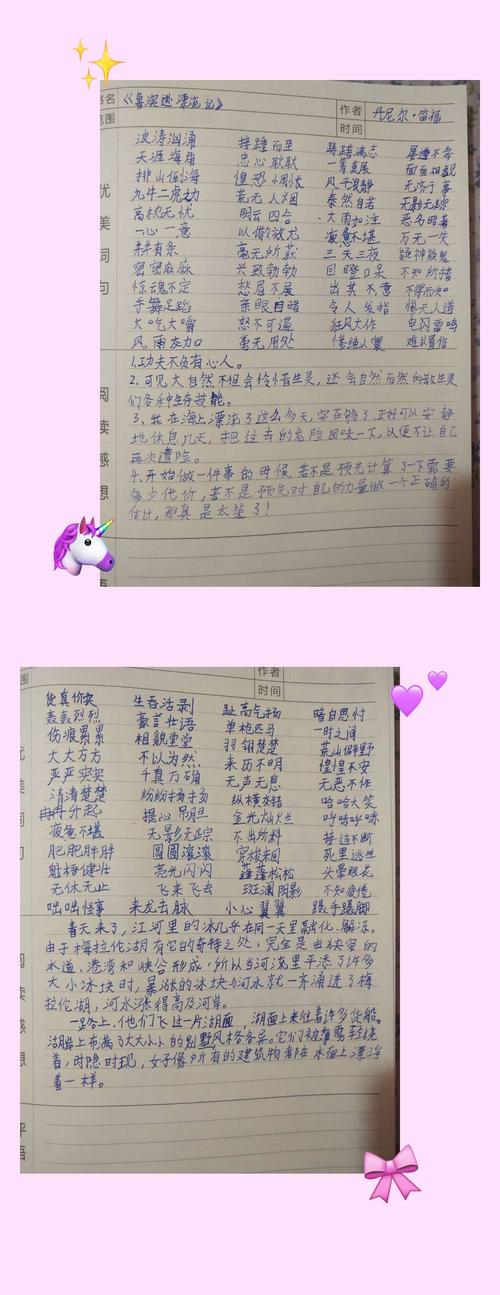 书名 《鲁滨逊漂流记》 作者 丹尼尔·笛福
范围 时间
波涛汹涌 接踵而至 踌躇满志 屡遭不幸
天涯海角 忠心耿耿 一筹莫展 面面相觑
排山倒海 惶恐惆怅 风平浪静 无济于事
九牛二虎之力 荒无人烟 泰然自若 无影无踪
高枕无忧 阴云四合 大雨如注 恶名昭著
一心一意 以儆效尤 疲惫不堪 万无一失
井井有条 毫无所获 三天三夜 疑神疑鬼
密密麻麻 兴致勃勃 目瞪口呆 不知所措
惊魂不定 愁眉不展 出其不意 不得而知
手舞足蹈 亲眼目睹 令人发指 惨无人道
大吃大嚼 怒不可遏 狂风大作 电闪雷鸣
风雨交加 毫无用处 惨绝人寰 难以置信
优美词句
1.功夫不负有心人。
2、可见大自然不但会怜惜生灵，还会自然而然的教生灵
们各种生存技能。
3、我在海上漂流了这么多天，实在够了，正好可以安静
地休息几天，把过去的危险回味一下，以便不让自己
再次遭险。
4、开始做一件事的时候，若不是预先计算了一下需要
多少代价，若不是预先对自己的力量做一个正确的
估计，那真是太笨了！
阅读感想
作者
围 时间
货真价实 生吞活剥 趾高气扬 暗自思忖
轰轰烈烈 豪言壮语 单枪匹马 一时之间
伤痕累累 相貌堂堂 羽翎楚楚 荒山僻野
大大方方 不以为然 来历不明 惶惶不安
严严实实 千真万确 无声无息 无恶不作
清清楚楚 纷纷扬扬 纵横交错 哈哈大笑
冉冉升起 提心吊胆 金光灿烂 呼哧呼哧
疲惫不堪 无影无踪 不出所料 接连不断
肥肥胖胖 圆圆滚滚 穿梭来回 死里逃生
魁梧健壮 亮光闪闪 蓬蓬松松 头晕眼花
无休无止 飞来飞去 斑斓阴影 不知疲倦
咄咄怪事 来龙去脉 小心翼翼 蹑手蹑脚
美词句
春天来了，江河里的冰几乎在同一天里融化、解冻。
由于梅拉伦湖有它的奇特之处，完全是由狭窄的
水道、港湾和峡谷形成，所以当河流里平添了许多
大小冰块时，暴涨的冰块与河水就一齐涌进了梅
拉伦湖，河水涨得高及河岸。
一路上，他们飞过一片湖面 湖面上来往着许多货船。
湖畔上布满了大大小小的别墅，风格各异。它们被薄雾轻绕
着，时隐时现，好像所有的建筑物都在水面上漂浮
着一样。
阅读感想
评语